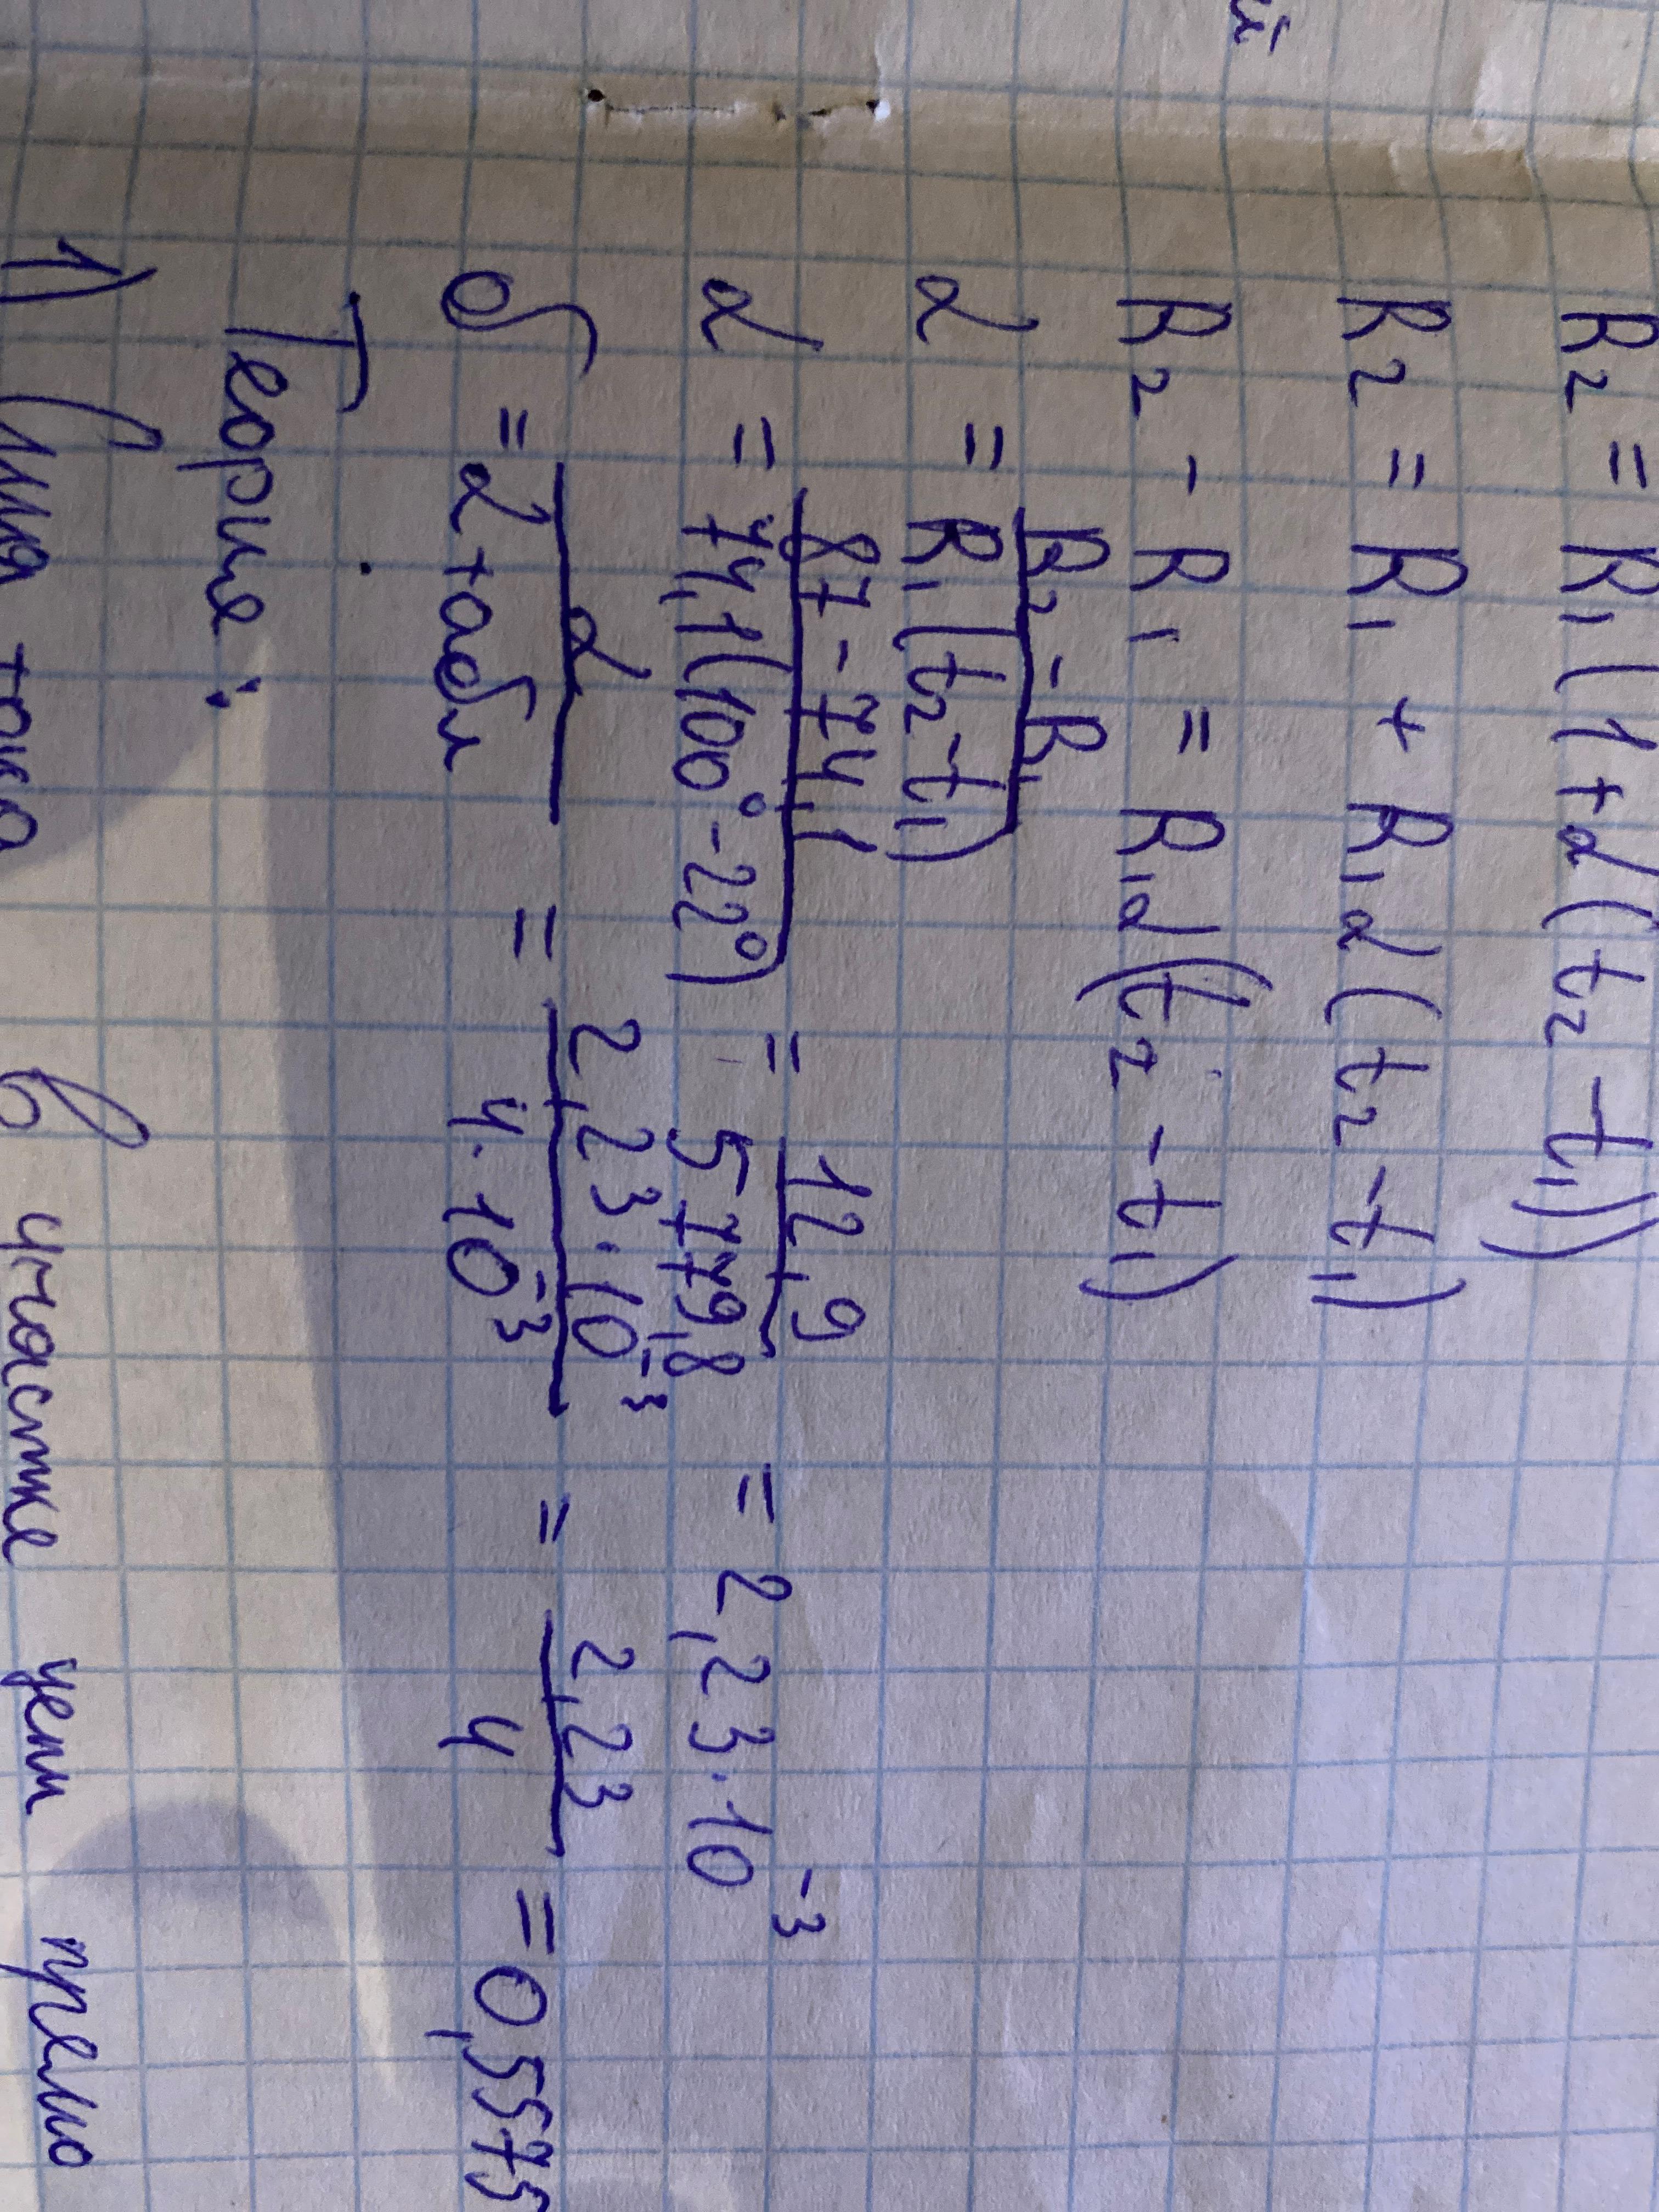 й
R₂ = R₁(1+α(t₂-t₁))
R₂ = R₁ + R₁α(t₂-t₁)
R₂ - R₁ = R₁α(t₂-t₁)
α = (R₂-R₁)/(R₁(t₂-t₁))
α = (87-74,1)/(74,1(100°-22°)) = 12,9/5779,8 = 2,23·10⁻³
δ = α/(α табл) = (2,23·10⁻³)/(4·10⁻³) = 2,23/4 = 0,5575
Теория:
1) Сила тока в участке цепи прямо